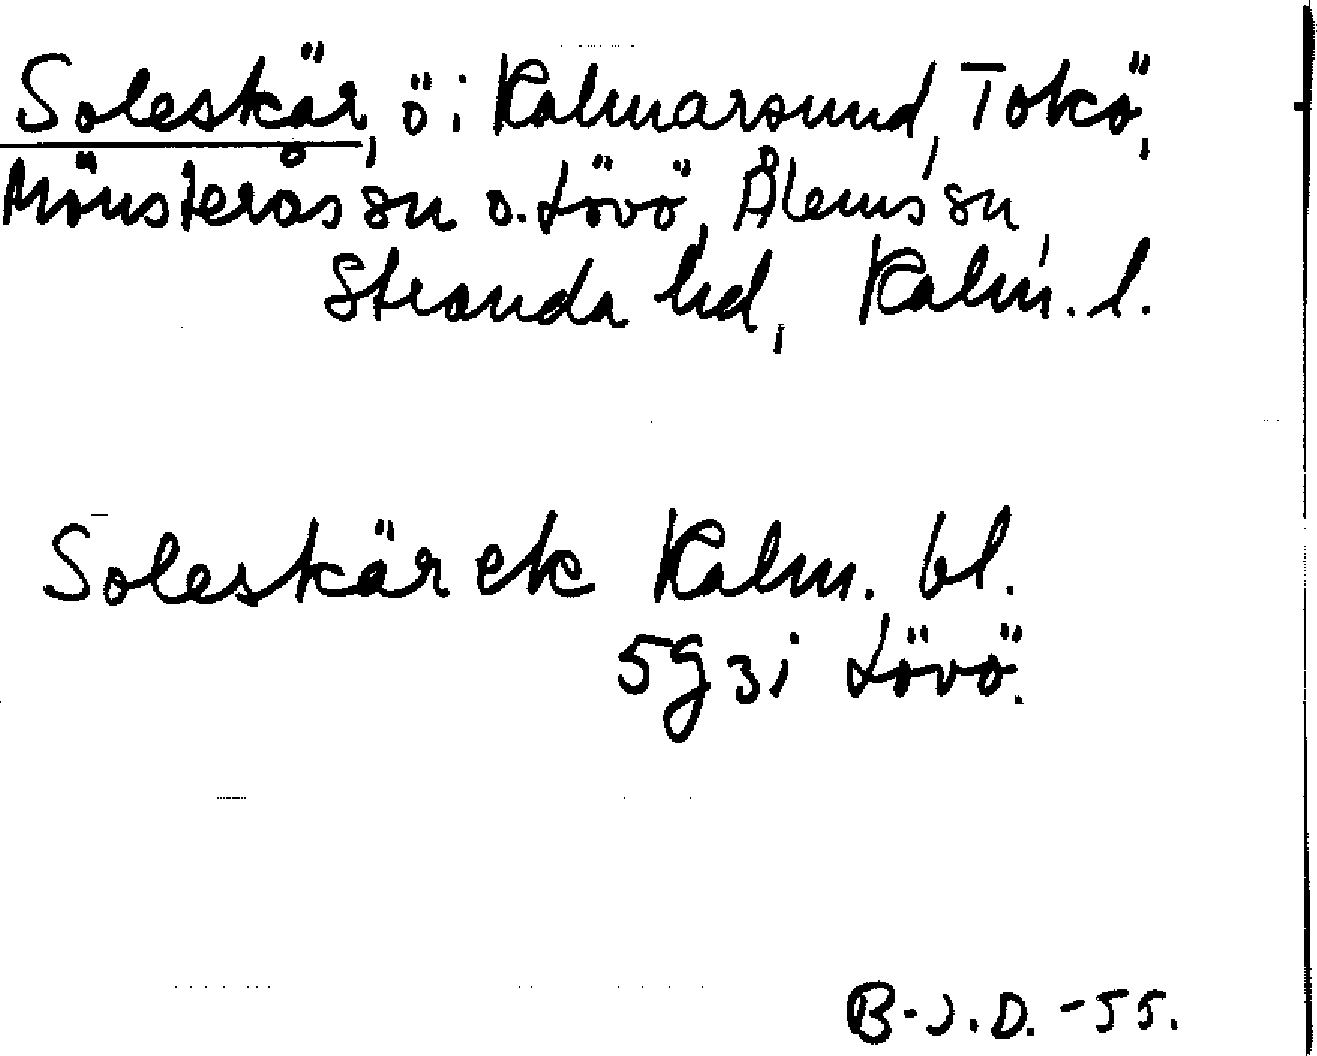 Soleskär, ö i Kalmarsund, Tokö,
Mönsterås sn o. Lövö, Ålems sn,
Stranda hd, Kalm. l.
Soleskär ek Kalm. bl.
5g3i Lövö.
B-J.D. -55.